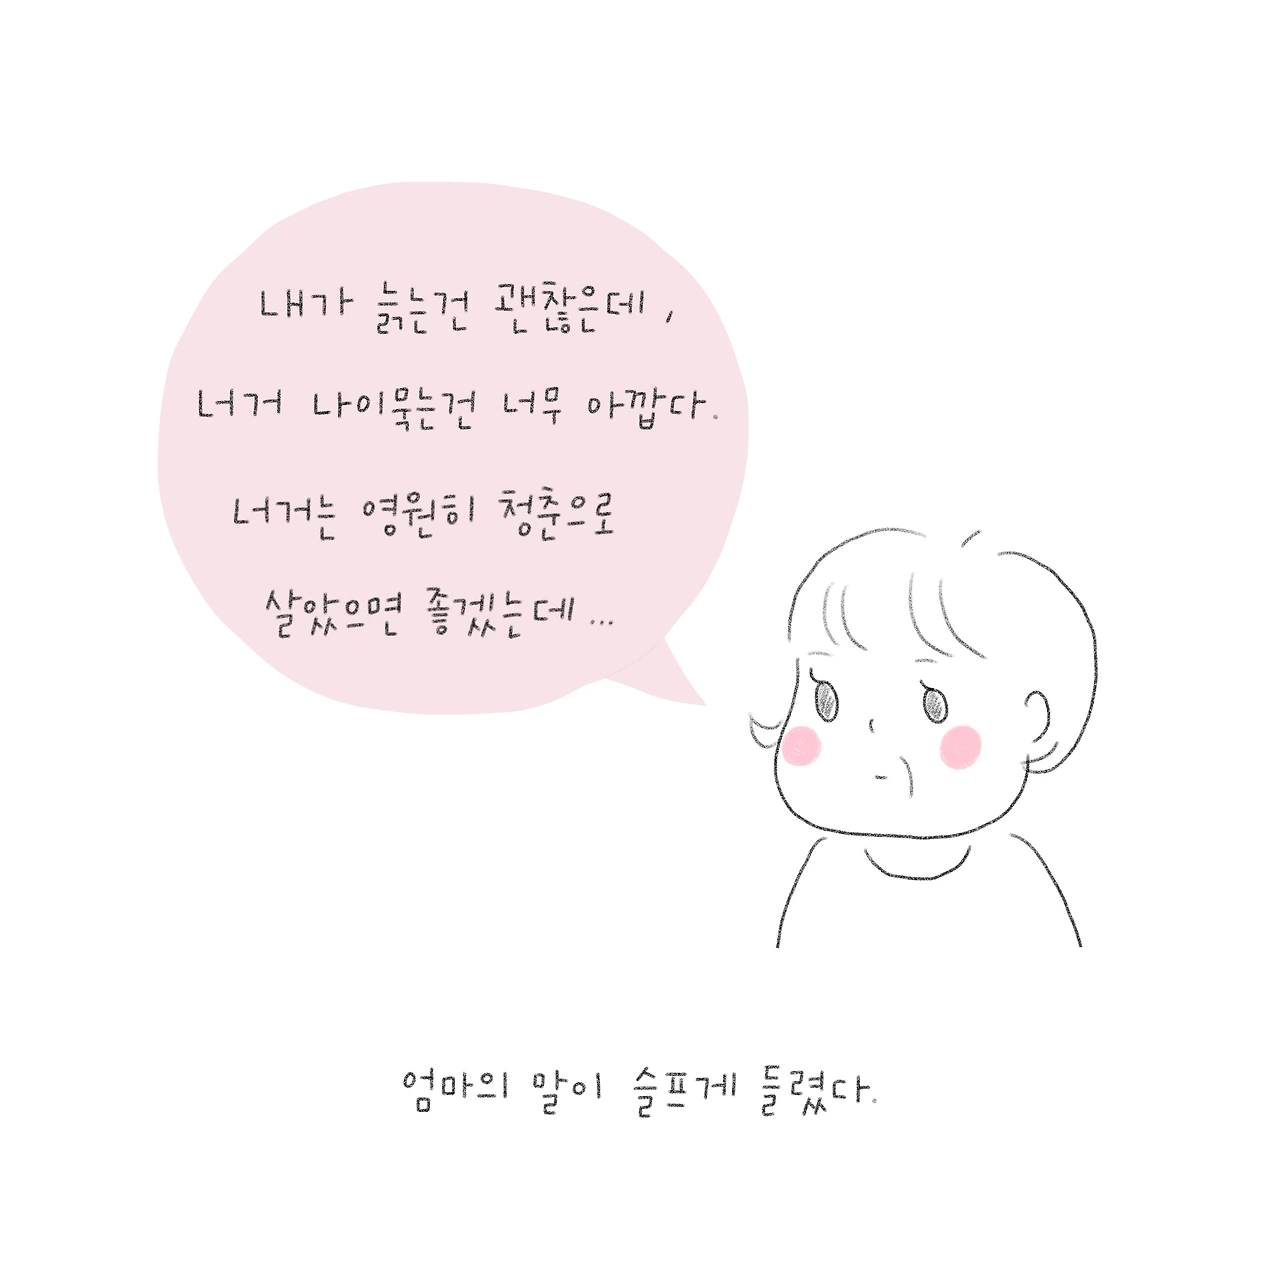 내가 늙는건 괜찮은데,
너거 나이묵는건 너무 아깝다.
너거는 영원히 청춘으로
살았으면 좋겠는데...
엄마의 말이 슬프게 들렸다.